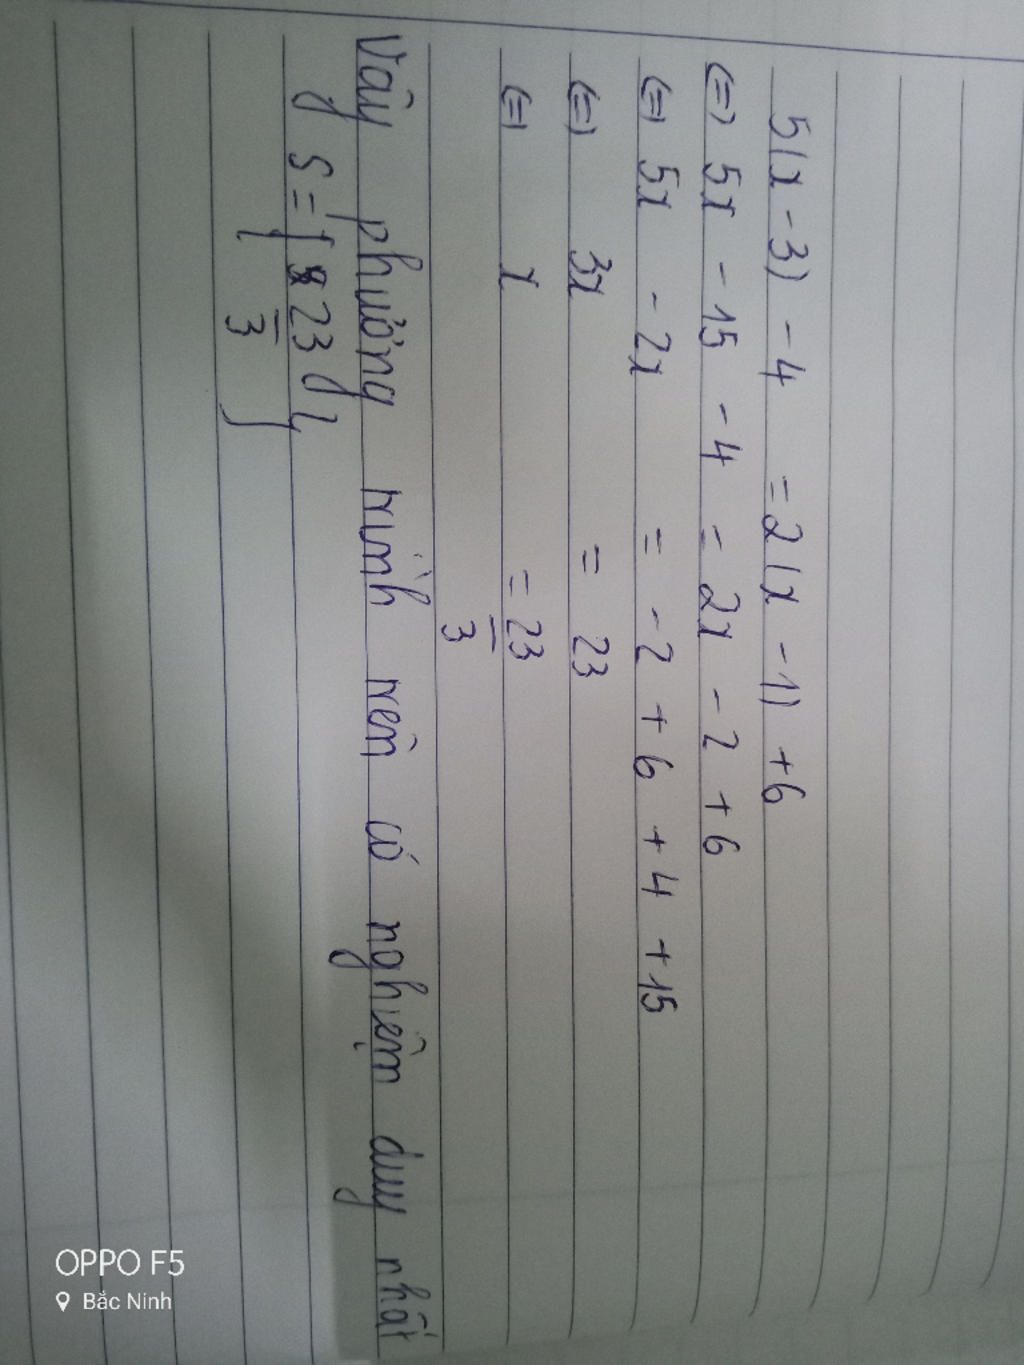 5(x - 3) - 4 = 2(x - 1) + 6
(=) 5x - 15 - 4 = 2x - 2 + 6
(=) 5x - 2x = -2 + 6 + 4 + 15
(=) 3x = 23
(=) x = 23/3
Vậy phương trình trên có nghiệm duy nhất
S = { 23/3 }
OPPO F5
Bắc Ninh